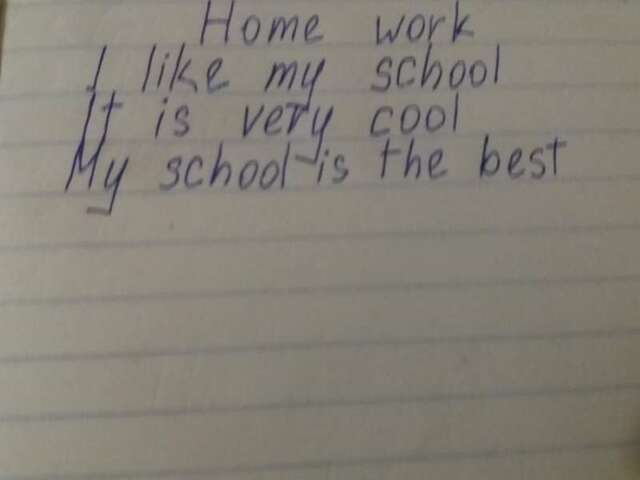 Home work
I like my school
It is very cool
My school is the best